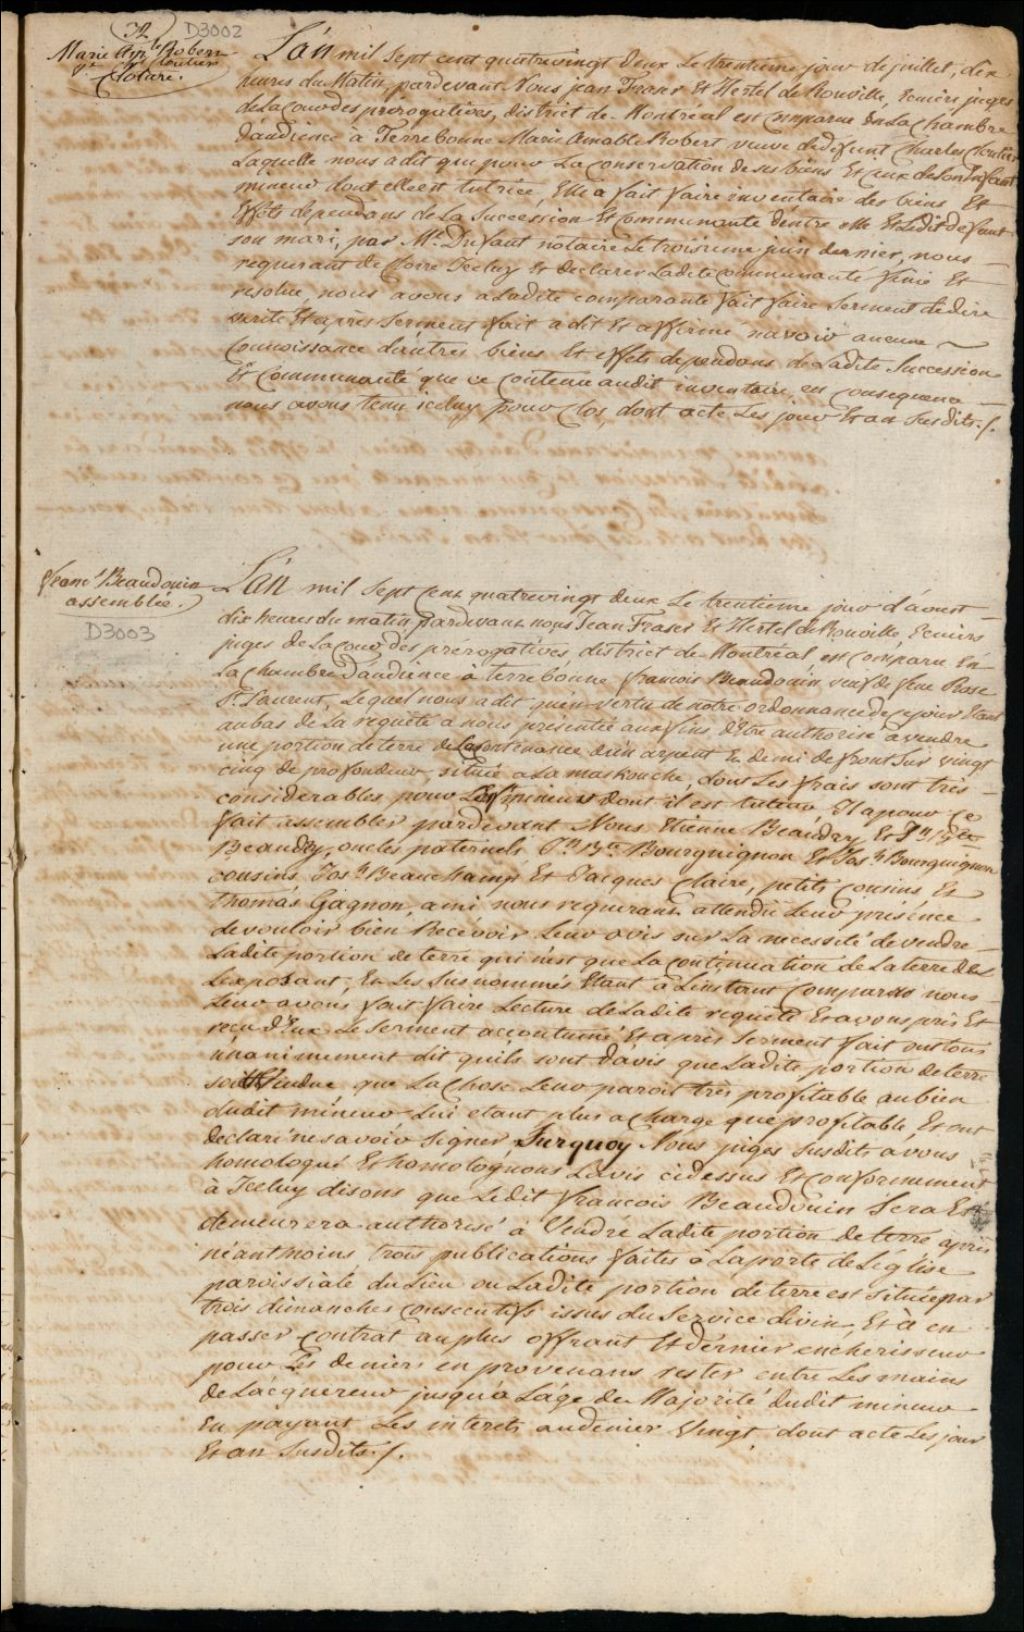 32 D3002
Marie Am.le Robert
ve Cloutier
Cloture.
L'án mil Sept cent quatrevingt deux Le trentieme jour de juillet, dix
heures du Matin, pardevant Nous jean Fraser Et Hertel de Rouville, Ecuiers juges
de La Cour des prerogatives, district de Montréal est Comparue En La Chambre
d'audience à Terrebonne Marie Amable Robert veuve de défunt Charles Cloutier
Laquelle nous a dit que pour La Conservation de ses biens Et Ceux de son Enfant
mineur dont elle est tutrice, Elle a fait faire inventaire des biens Et
Effets dependans de La Succession Et Communauté d'entre elle Et Ledit defunt
son mari, par Mr. Dufaut notaire Le troisieme juin dernier, nous
requerant de Clorre Iceluy Et declarer Ladite Communauté finie Et
resolue, nous avons a Ladite comparante fait faire Serment de dire
verité Et après Serment fait a dit Et affirmé n'avoir aucune
Connoissance d'autres biens Et effets dependans de Ladite Succession
Et Communauté que ce Contenu audit inventaire, en consequence
nous avons tenu iceluy pour Clos, dont acte Les jour Et an Susdits./.
franc.s Beaudouin
assemblée.
D3003
L'án mil Sept Cent quatrevingt deux Le trentieme jour d'áoust
dix heures du matin pardevant nous Jean Fraser Et Hertel de Rouville, Ecuiers
juges de La Cour des prérogatives district de Montréal, est Comparu En
La Chambre d'audience à terrebonne françois Beaudouin veuf de feue Rose
St Laurent, Lequel nous a dit qu'en vertu de notre ordonnance de ce jour Etant
au bas de La requête a nous présentée aux fins d'Etre authorisé a vendre
une portion de terre de La Contenance d'un arpent Et demi de front Sur vingt
cinq de profondeur, située a La maskouche, dont Les frais sont très
considerables pour Les mineurs dont il est tuteur, Il a pour ce
fait assembler pardevant Nous Etienne Beaudry, Et Jn Bte
Beaudry, oncles paternels Jn Bte Bourguignon Et Jos.h Bourguignon
cousins Jos.h Beauchamp Et Jacques Claire, petits Cousins, Et
Thomas Gagnon, ami nous requerant attendu Leur présence
de vouloir bien Recevoir Leur avis sur La necessité de vendre
Ladite portion de terre qui n'est que La Continuation de La terre de
L'exposant, Et Les Susnommés Etant à L'instant Comparus nous
Leur avons fait faire Lecture de Ladite requête Et avons pris Et
reçu d'Eux Le Serment accoutumé Et après Serment fait ont tous
unanimement dit qu'ils sont d'avis que Ladite portion de terre
soit Vendue que La Chose Leur paroit très profitable au bien
dudit mineur Lui etant plus a charge que profitable, Et ont
declaré ne savoir Signer, Surquoy Nous juges Susdits avons
homologué Et homologuons L'avis cidessus Et conformement
à Iceluy disons que Ledit françois Beaudouin Sera Et
demeurera authorisé à Vendre Ladite portion de terre après
néantmoins trois publications faites à La porte de L'église
paroissiale du Lieu ou Ladite portion de terre est Située par
trois dimanches Consecutifs issue du Service divin, Et à en
passer Contrat au plus offrant Et dernier encherisseur
pour Les deniers en provenans rester entre Les mains
de L'acquereur jusqu'à L'age de Majorité dudit mineur
En payant Les interets au denier Vingt, dont acte Les jour
Et an Susdits./.